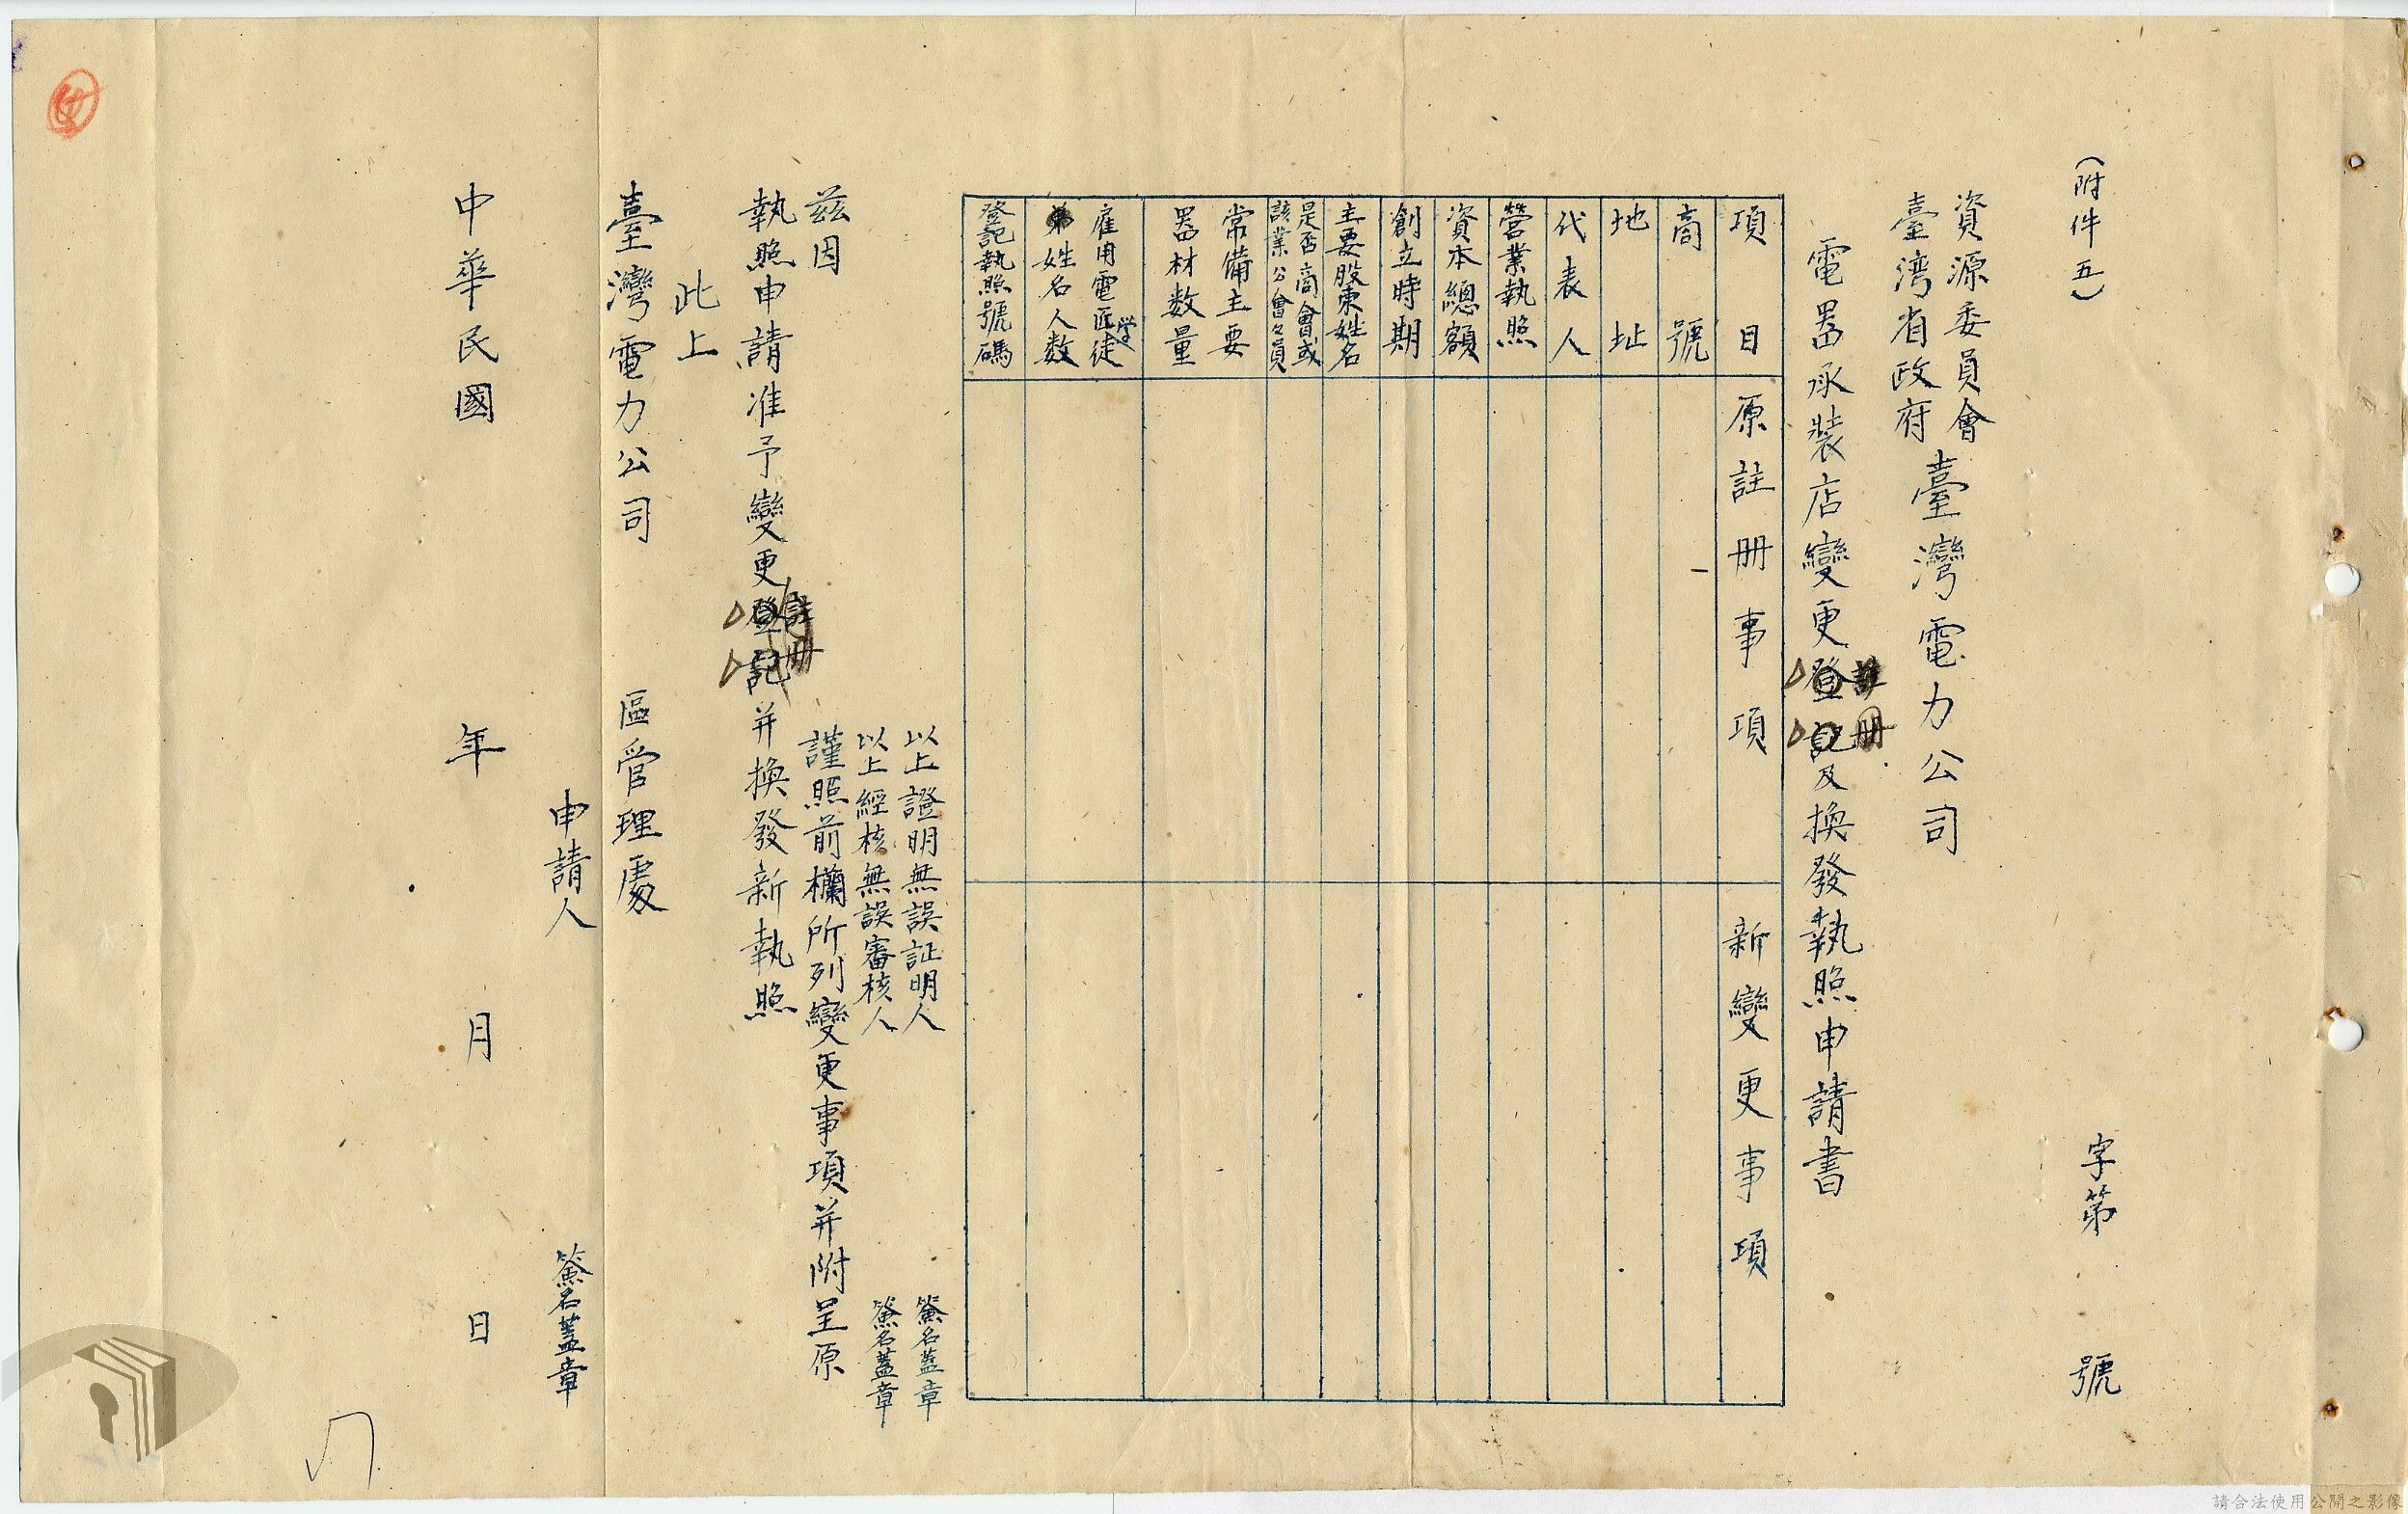 (附件五)
字第　　號
資源委員會
臺湾省政府
臺灣電力公司
電器承裝店變更登記及換發執照申請書
註册
項目
原註册事項
新變更事項
商號
地址
代表人
營業執照
資本總額
創立時期
主要股東姓名
是否商會或
該業公會々員
常備主要
器材数量
雇用電匠学徒
姓名人数
登記執照號碼
以上證明無誤証明人　　簽名蓋章
以上經核無誤審核人　　簽名蓋章
茲因　　謹照前欄所列變更事項并附呈原
執照申請准予變更登記并換發新執照
註册
此上
臺灣電力公司　　區管理處
申請人　　簽名蓋章
中華民國　　年　　月　　日
請合法使用公開之影像